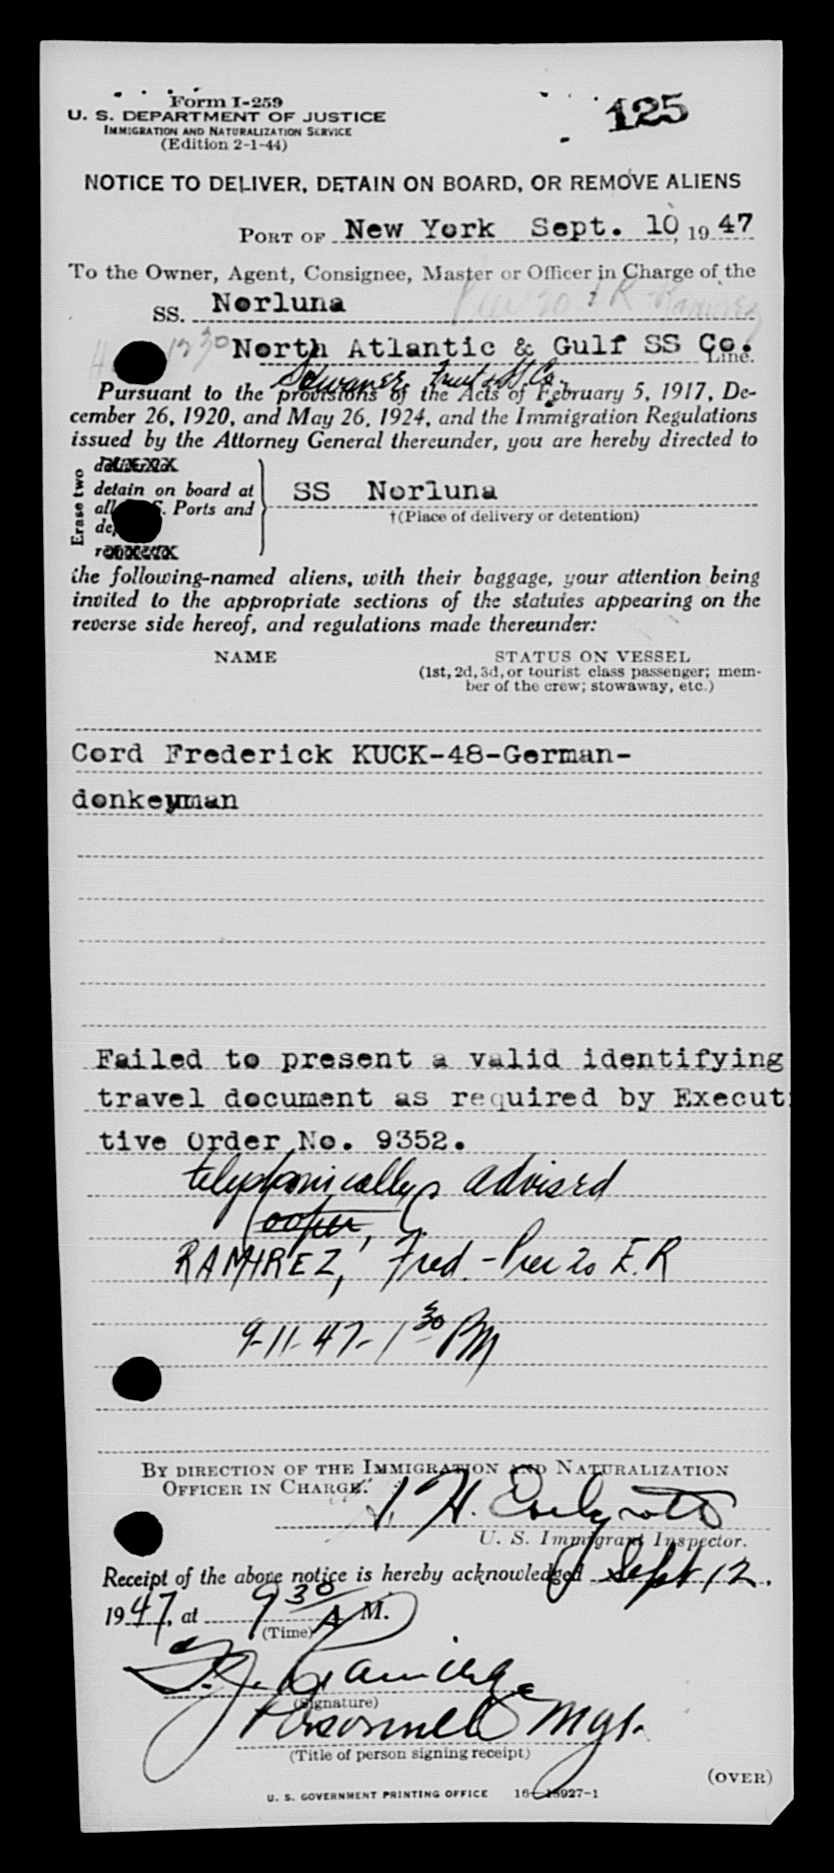 Form I-259
125
U. S. DEPARTMENT OF JUSTICE
IMMIGRATION AND NATURALIZATION SERVICE
(Edition 2-1-44)
NOTICE TO DELIVER, DETAIN ON BOARD, OR REMOVE ALIENS
PORT OF New York Sept. 10, 19 47
To the Owner, Agent, Consignee, Master or Officer in Charge of the
SS. Norluna
North Atlantic & Gulf SS Co. Line.
Fruit & SS Co.
Pursuant to the provisions of the Acts of February 5, 1917, De-
cember 26, 1920, and May 26, 1924, and the Immigration Regulations
issued by the Attorney General thereunder, you are hereby directed to
Erase two
detain on board at
all U. S. Ports and
SS Norluna
†(Place of delivery or detention)
the following-named aliens, with their baggage, your attention being
invited to the appropriate sections of the statutes appearing on the
reverse side hereof, and regulations made thereunder:
NAME STATUS ON VESSEL
(1st, 2d, 3d, or tourist class passenger; mem-
ber of the crew; stowaway, etc.)
Cord Frederick KUCK-48-German-
donkeyman
Failed to present a valid identifying
travel document as required by Execut
tive Order No. 9352.
telephonically advised
Cooper,
RAMIREZ, Fred. - Pier 20 E.R
9-11-47- 1 30 PM
BY DIRECTION OF THE IMMIGRATION AND NATURALIZATION
OFFICER IN CHARGE.
U. S. Immigrant Inspector.
Receipt of the above notice is hereby acknowledged Sept 12,
1947, at 9 30 A M.
(Time)
F. J. Ramirez
(Signature)
Personnel Mgr.
(Title of person signing receipt)
(OVER)
U. S. GOVERNMENT PRINTING OFFICE 16-13927-1